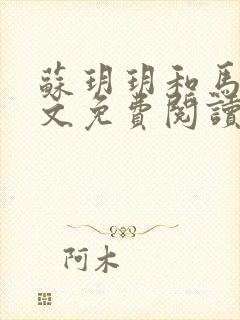 蘇玥玥和馬
文免費閱讀
阿木